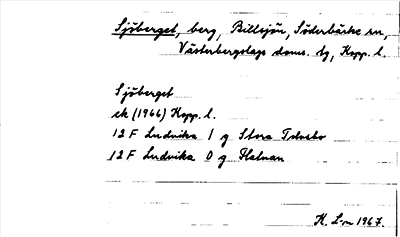 Sjöberget, berg, Billsjön, Söderbärke sn,
Västerbergslags doms. tg, Kopp. l.
Sjöberget
ek (1966) Kopp. l.
12 F Ludvika 1 g Stora
12 F Ludvika 0 g
K. L-n 1967.